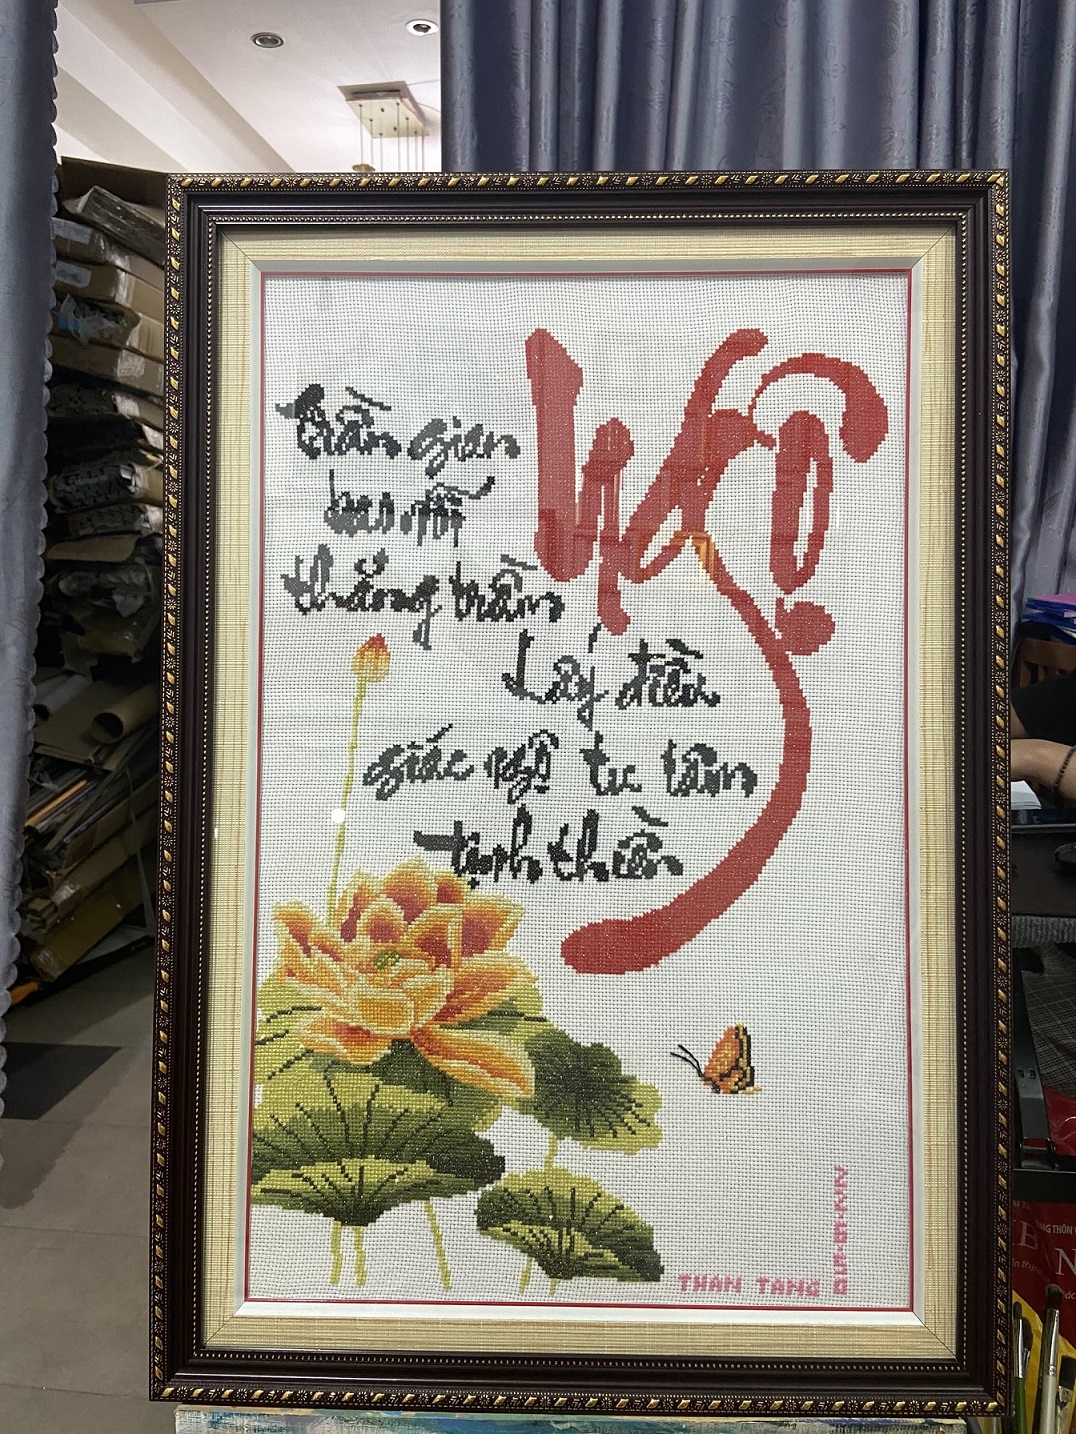 Ngộ
Trần gian
bao nỗi
thăng trầm
Lấy điều
giác ngộ tu tâm
tịnh thiền
THAN TANG